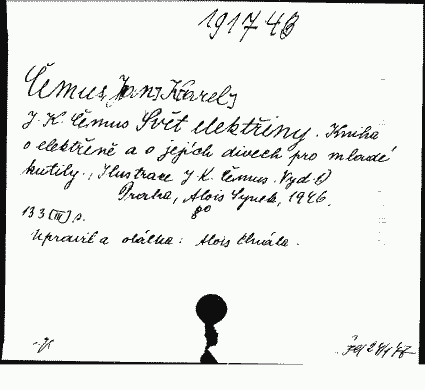 191743
Čemus, J[an] K[arel]
J. K. Čemus Svět elektřiny. Kniha
o elektřině a o jejích divech pro mladé
kutily., Ilustrace J. K. Čemus. Vyd. 1)
Praha, Alois Synek, 1946.
8°
133 [III] s.
Upravil a obálka: Alois Chvála.